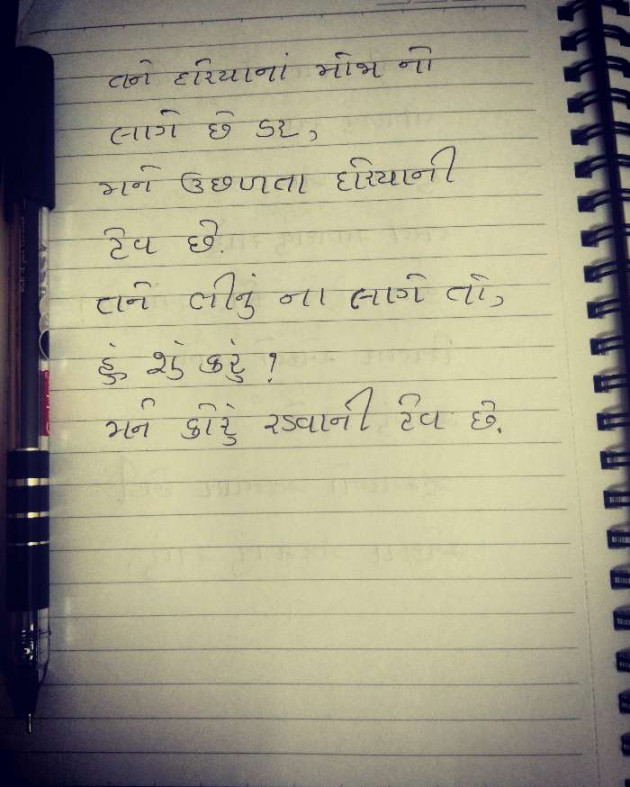 તને દરિયાનાં મોજા નો
લાગે છે ડર,
મને ઉછળતા દરિયાની
ટેવ છે.
તને લીનું ના લાગે તો,
હું શું કરું ?
મને કોરું રડવાની ટેવ છે.